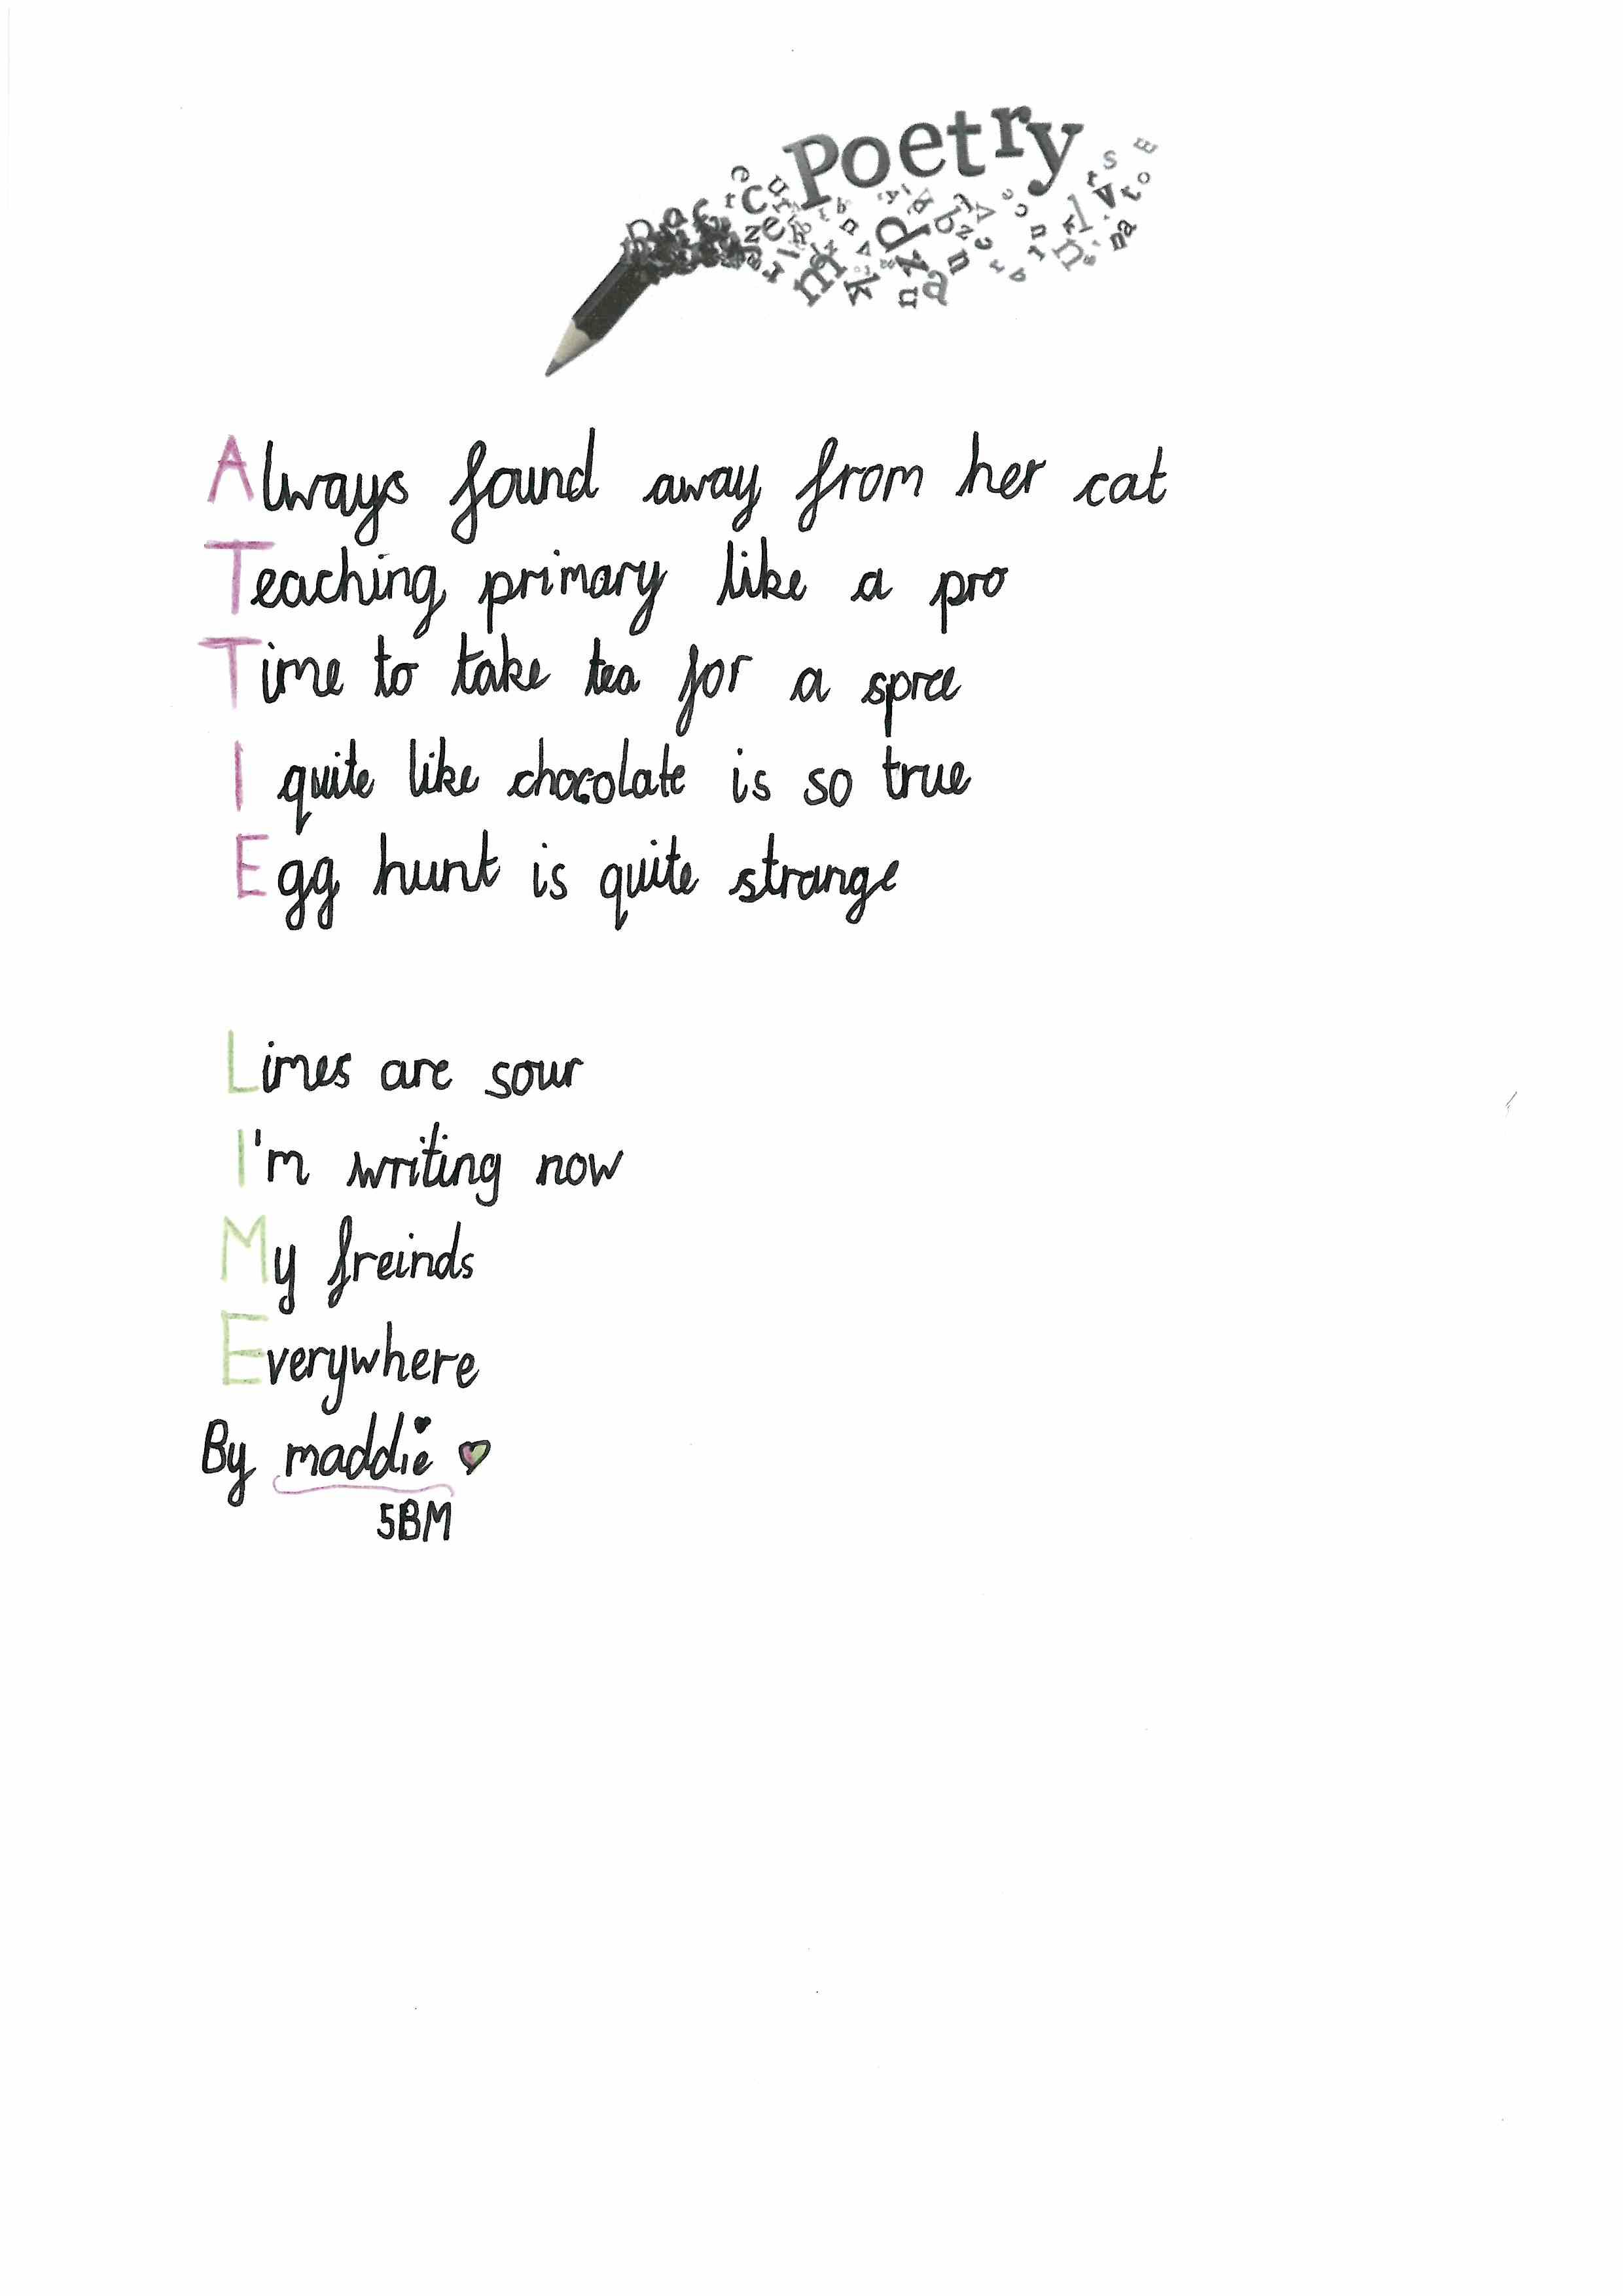 Poetry
Always found away from her cat
Teaching primary like a pro
Time to take tea for a spree
I quite like chocolate is so true
Egg hunt is quite strange
Limes are sour
I'm writing now
My freinds
Everywhere
By maddie
5BM